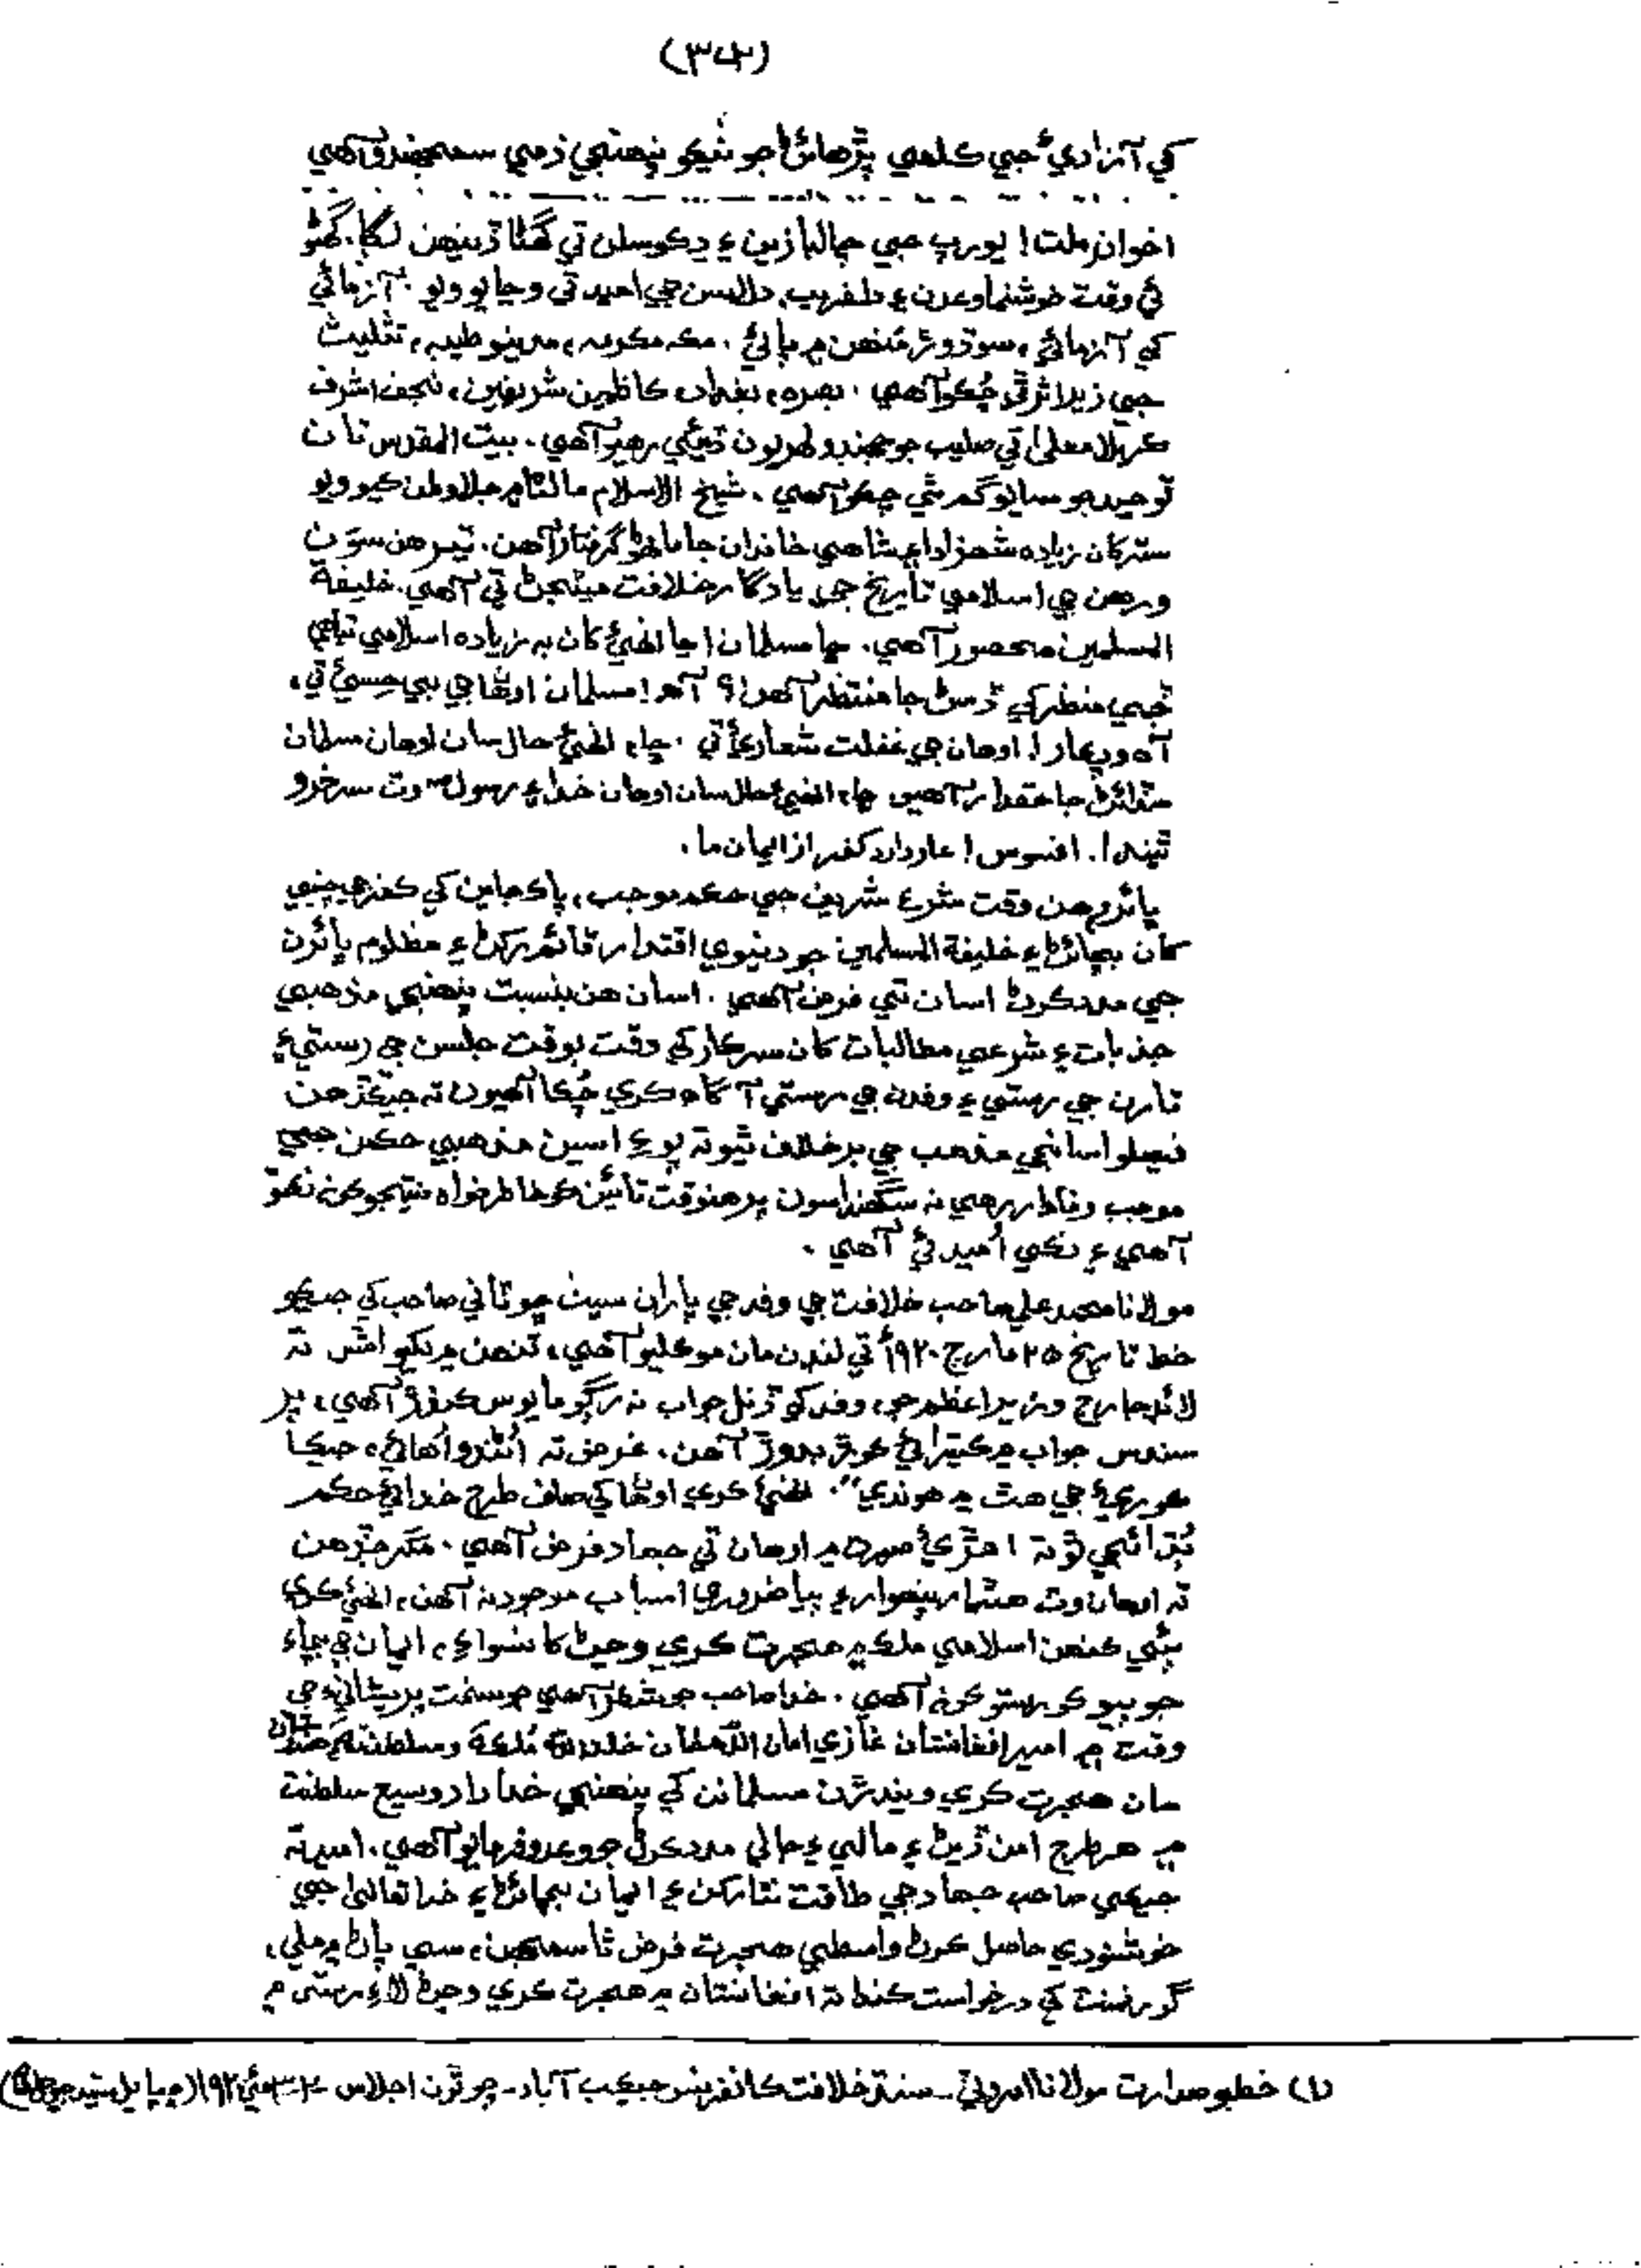 (٣٤٢)
کي آزاديءَ جي ڪلمي پڙهائڻ جو ٺيڪو پنهنجي ذمي سمجهندو آهي
اخوان ملت! يورپ جي چالبازين ۽ ڊڪوسلن تي گهڻا ڏينهن لڳا. گهڻو
ئي وقت خوشنما وعدن ۽ دلفريب دلاسن جي اميد تي وڃايو ويو. آزمائي
کي آزمائي، سو ڌوڙ منهن ۾ پائي. مڪه مڪرمه، مدينو طيبه، تثليث
جي زير اثر ٿي چڪو آهي. بصره، بغداد، ڪاظمين شريفين، نجف اشرف
ڪربلا معليٰ تي صليب جو جهنڊو لهريون ڏيئي رهيو آهي. بيت المقدس تان
توحيد جو سايو گم ٿي چڪو آهي. شيخ الاسلام مالٽا ۾ جلاوطن ڪيو ويو
ستر کان زياده شهزادا ۽ شاهي خاندان جا ماڻهو گرفتار آهن. تيرهن سون
ورهن جي اسلامي تاريخ جي يادگار خلافت ميٽجڻ تي آهي. خليفة
المسلمين محصور آهي. ڇا مسلمان اڃا انهيءَ کان به زياده اسلامي تباهي
جي منظر کي ڏسڻ جا منتظر آهن؟ آه! مسلمان اوهان جي بي حسيءَ تي،
آه ويچارا! اوهان جي غفلت شعاريءَ تي. ڇا، انهيءَ حال سان اوهان مسلمان
سڏائڻ جا حقدار آهيو. ڇا، انهيءَ حال سان اوهان خدا ۽ رسول ﷺ وٽ سرخرو
ٿيندا. افسوس! عار دارد ڪفر از ايمان ما.
ڀائرو هن وقت شرع شريف جي حڪم موجب، پاڪ جاين کي ڪفر جي چنبي
کان بچائڻ ۽ خليفة المسلمين جو دنيوي اقتدار قائم رکڻ ۽ مظلوم ڀائرن
جي مدد ڪرڻ اسان تي فرض آهي. اسان هن بنسبت پنهنجي مذهبي
جذبات ۽ شرعي مطالبات کان سرڪار کي وقت بوقت جلسن جي رستي ۽
تارن جي رستي ۽ وفدن جي رستي آگاه ڪري چڪا آهيون ته جيڪڏهن
فيصلو اسانجي مذهب جي برخلاف ٿيو ته پوءِ اسين مذهبي حڪمن جي
موجب وفادار رهي نه سگهنداسون پر هنوقت تائين ڪو خاطرخواه نتيجو ڪونه نڪتو
آهي ۽ نڪي اُميد ئي آهي.
مولانا محمد علي صاحب خلافت جي وفد جي پاران سيٺ ڇوٽاڻي صاحب کي جيڪو
خط تاريخ ٢٥ مارچ ١٩٢٠ع تي لنڊن مان موڪليو آهي، تنهن ۾ لکيو اٿس ته
لائڊ جارج وزيراعظم جي وفد کي ڏنل جواب نه رڳو مايوس ڪندڙ آهي، پر
سندس جواب ۾ ڪيترائي ڪوڙ ڀريل آهن. غرض ته اُٿندو اُهائي، جيڪا
ڪوريءَ جي هٿ ۾ هوندي". انهيءَ ڪري اوهان کي صاف طرح خدائي حڪم
ٻڌائجي ٿو ته اهڙيءَ صورت ۾ اوهان تي جهاد فرض آهي. مگر جڏهن
ته اوهان وٽ هٿيار پنهوار ۽ ٻيا ضروري اسباب موجود نه آهن، انهيءَ ڪري
ٻئي ڪنهن اسلامي ملڪ ۾ هجرت ڪري وڃڻ کان سواءِ، ايمان جي بچاءَ
جو ٻيو ڪو رستو ڪونه آهي. خدا صاحب جو شڪر آهي جو سخت پريشانيءَ جي
وقت ۾ امير افغانستان غازي امان الله خان خلدالله ملڪه وسلطنته هندستان
مان هجرت ڪري ويندڙن مسلمانن کي پنهنجي خدا داد وسيع سلطنت
۾ هر طرح امن ڏيڻ ۽ مالي ۽ جاني مدد ڪرڻ جو وعدو فرمايو آهي. اميد ته
جيڪي صاحب جهاد جي طاقت نٿا رکن ۽ ايمان بچائڻ ۽ خدا تعاليٰ جي
خوشنودي حاصل ڪرڻ واسطي هجرت فرض ٿا سمجهن، سي پاڻ ۾ ملي،
گورنمينٽ کي درخواست ڪندا ته افغانستان ۾ هجرت ڪري وڃڻ لاءِ رستي ۾
(١) خطبو صدارت مولانا امروٽي ـ سنڌ خلافت ڪانفرنس جيڪب آباد ـ چوٿون اجلاس ٢ـ٣ مئي ١٩٢٠ع